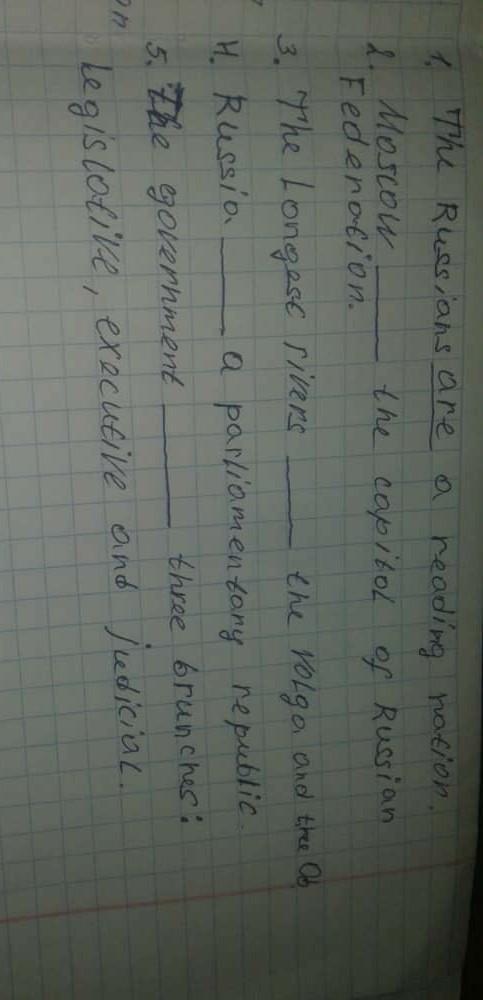 1. The Russians are a reading nation.
2. Moscow ____ the capital of Russian
Federation.
3. The longest rivers ____ the Volga and the Ob
4. Russia ____ a parliamentary republic.
5. The government ____ three brunches:
legislative, executive and judicial.
on